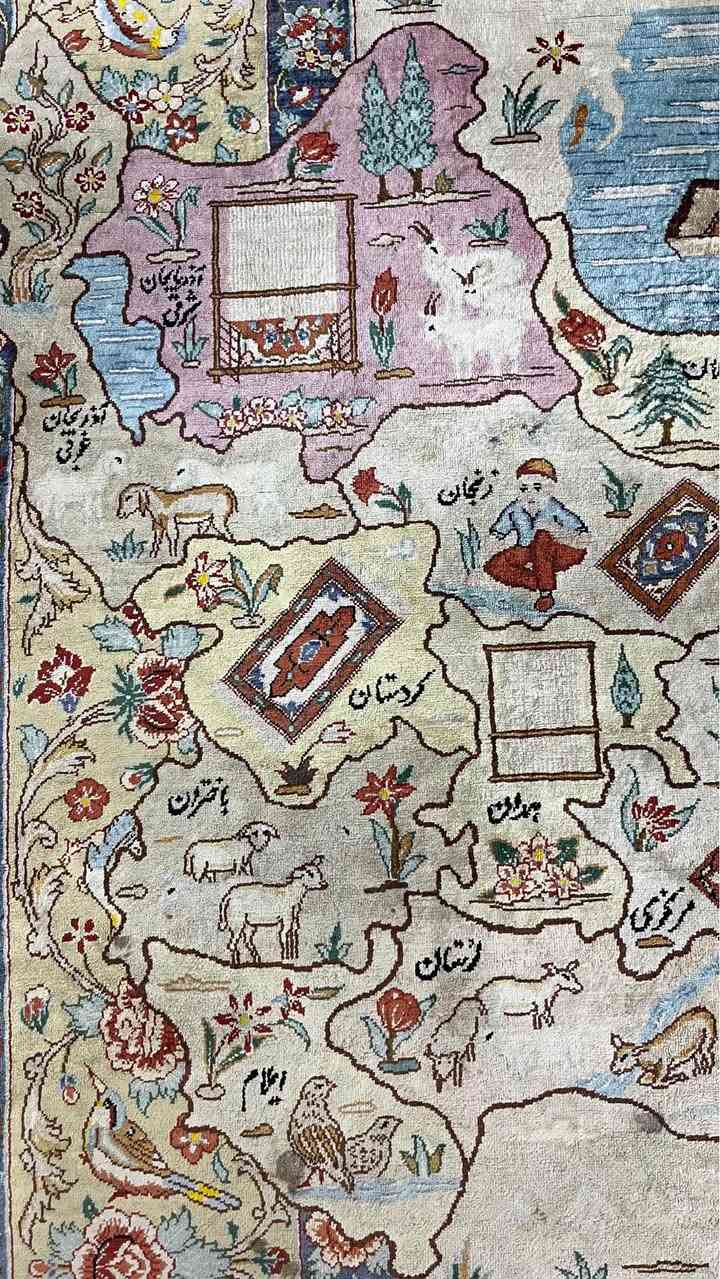 آذربایجان
شرقی
آذربایجان
غربی
زنجان
کردستان
باختران
همدان
مرکزی
لرستان
ایلام